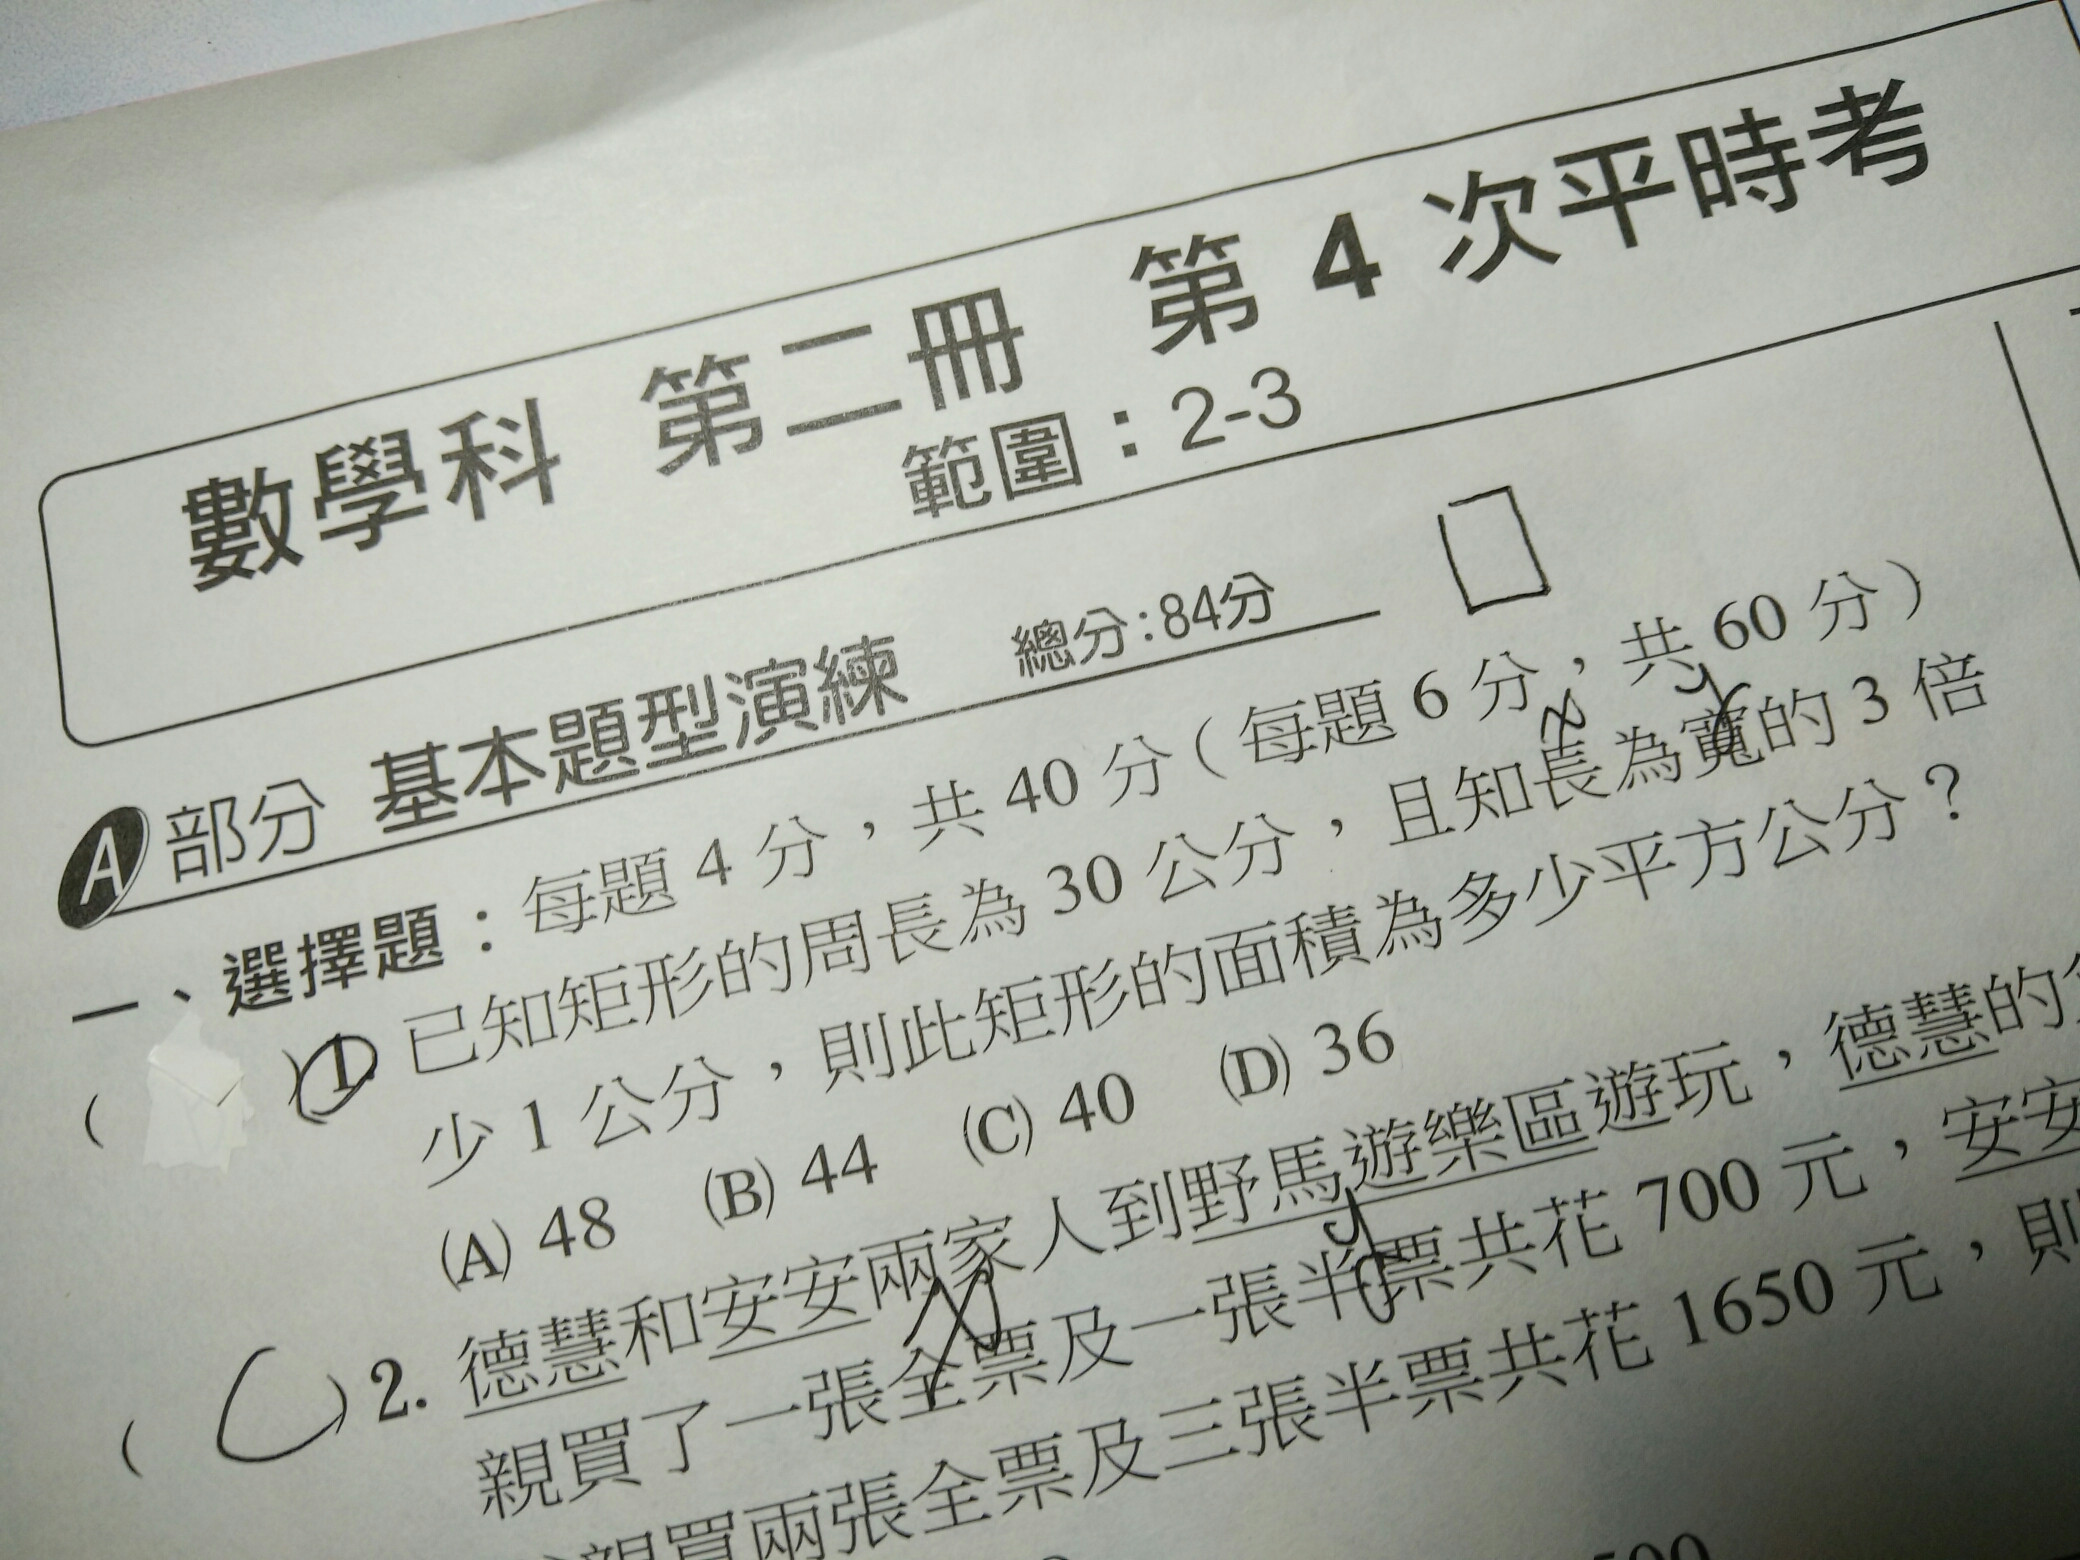 數學科 第二冊 第4次平時考
範圍：2-3
A 部分 基本題型演練 總分:84分
一、選擇題：每題 4 分，共 40 分（每題 6 分，共 60 分）
x y
( ) 1. 已知矩形的周長為 30 公分，且知長為寬的 3 倍
少 1 公分，則此矩形的面積為多少平方公分？
(A) 48 (B) 44 (C) 40 (D) 36
( C ) 2. 德慧和安安兩家人到野馬遊樂區遊玩，德慧的
x y
親買了一張全票及一張半票共花 700 元，安安
親買兩張全票及三張半票共花 1650 元，則